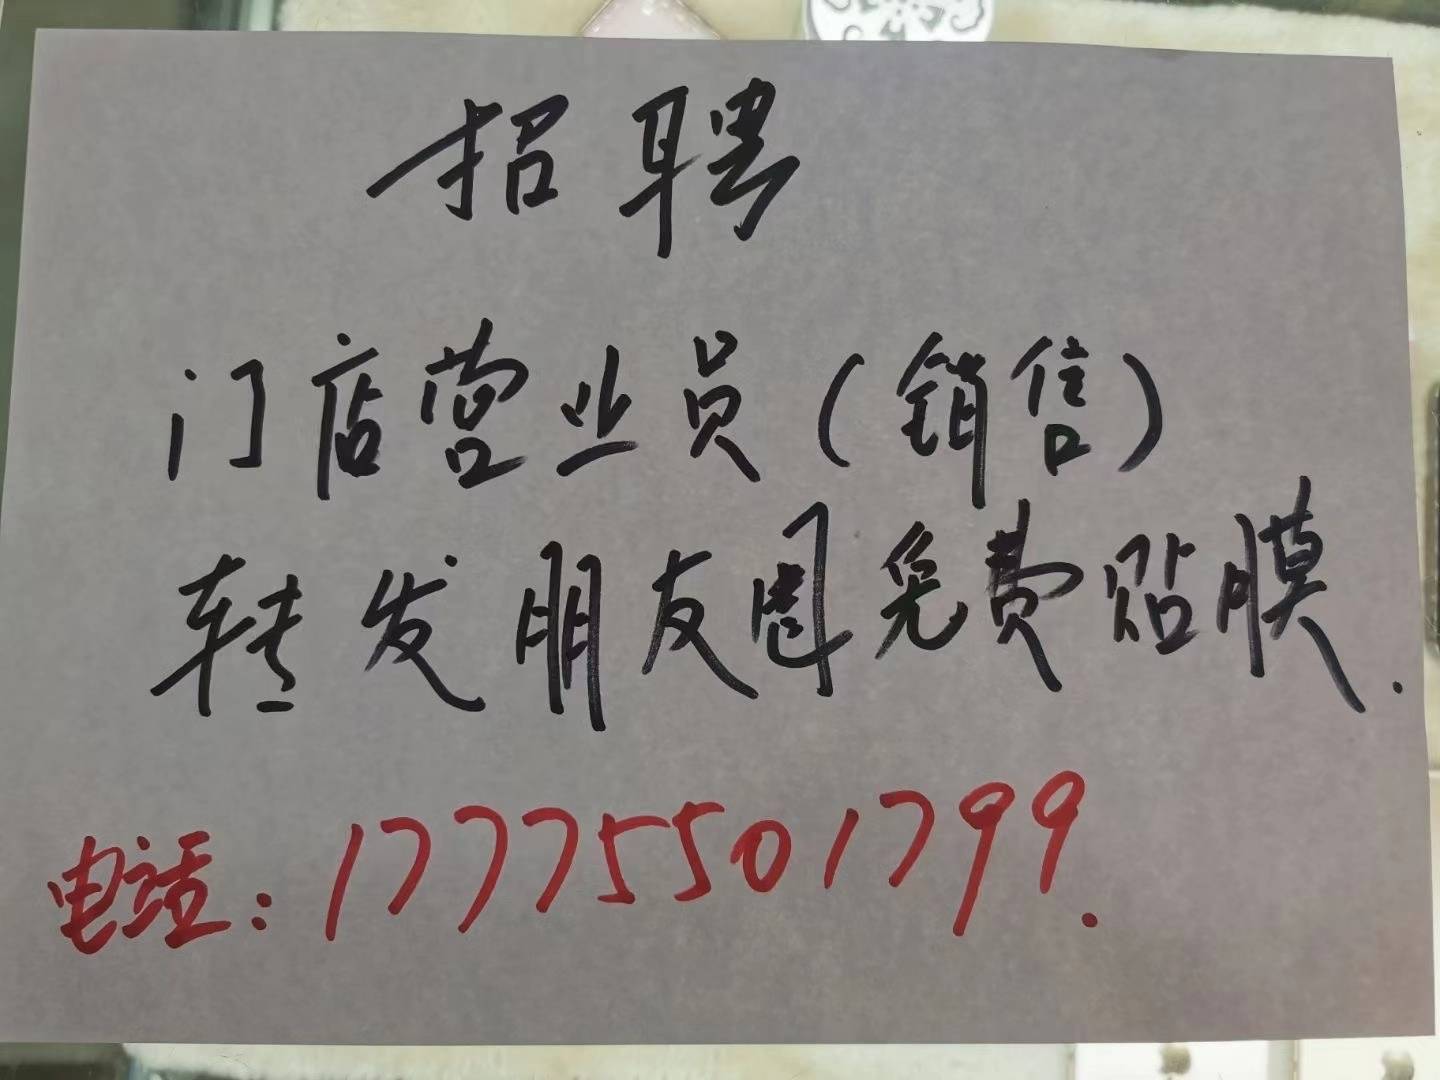 招聘
门店营业员(销售)
转发朋友圈免费贴膜.
电话:17775501799.